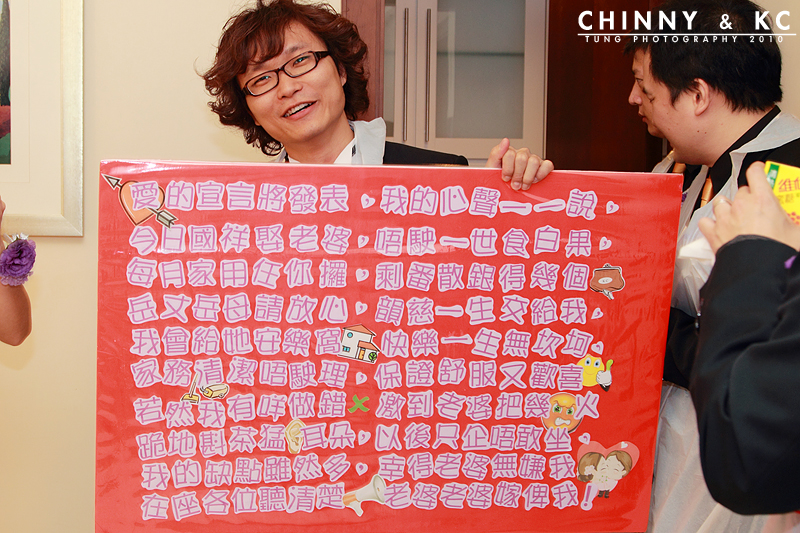 CHINNY & KC
TUNG PHOTOGRAPHY 2010
愛的宣言將發表 我的心聲一一說
今日國祥娶老婆 唔駛一世食白果
每月家用在你攞 剩番散銀得幾個
岳丈岳母請放心 韻慈一生交給我
我會給她安樂窩 快樂一生無坎坷
家務清潔唔駛理 保證舒服又歡喜
若然我有咩做錯 激到老婆把幾火
跪地斟茶猛 耳朵 以後只企唔敢坐
我的缺點雖然多 幸得老婆無嫌我
在座各位聽清楚 老婆老婆嫁俾我!